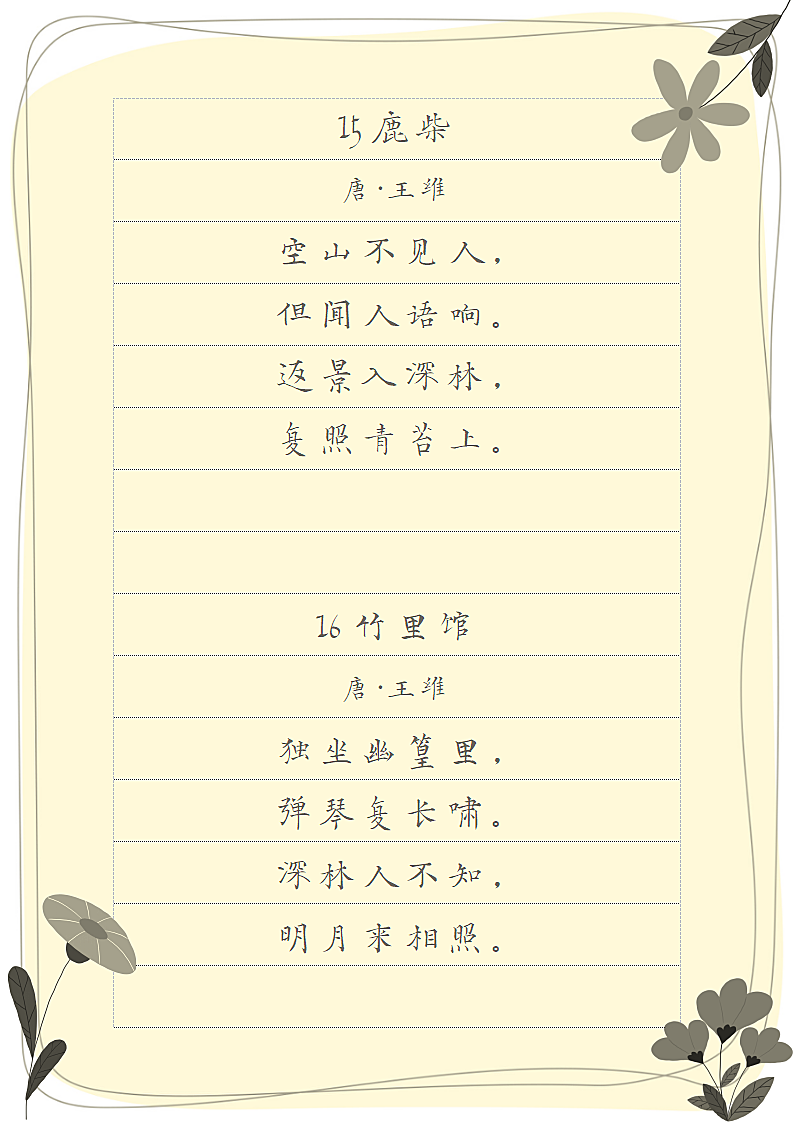 15鹿柴
唐·王维
空山不见人，
但闻人语响。
返景入深林，
复照青苔上。
16竹里馆
唐·王维
独坐幽篁里，
弹琴复长啸。
深林人不知，
明月来相照。